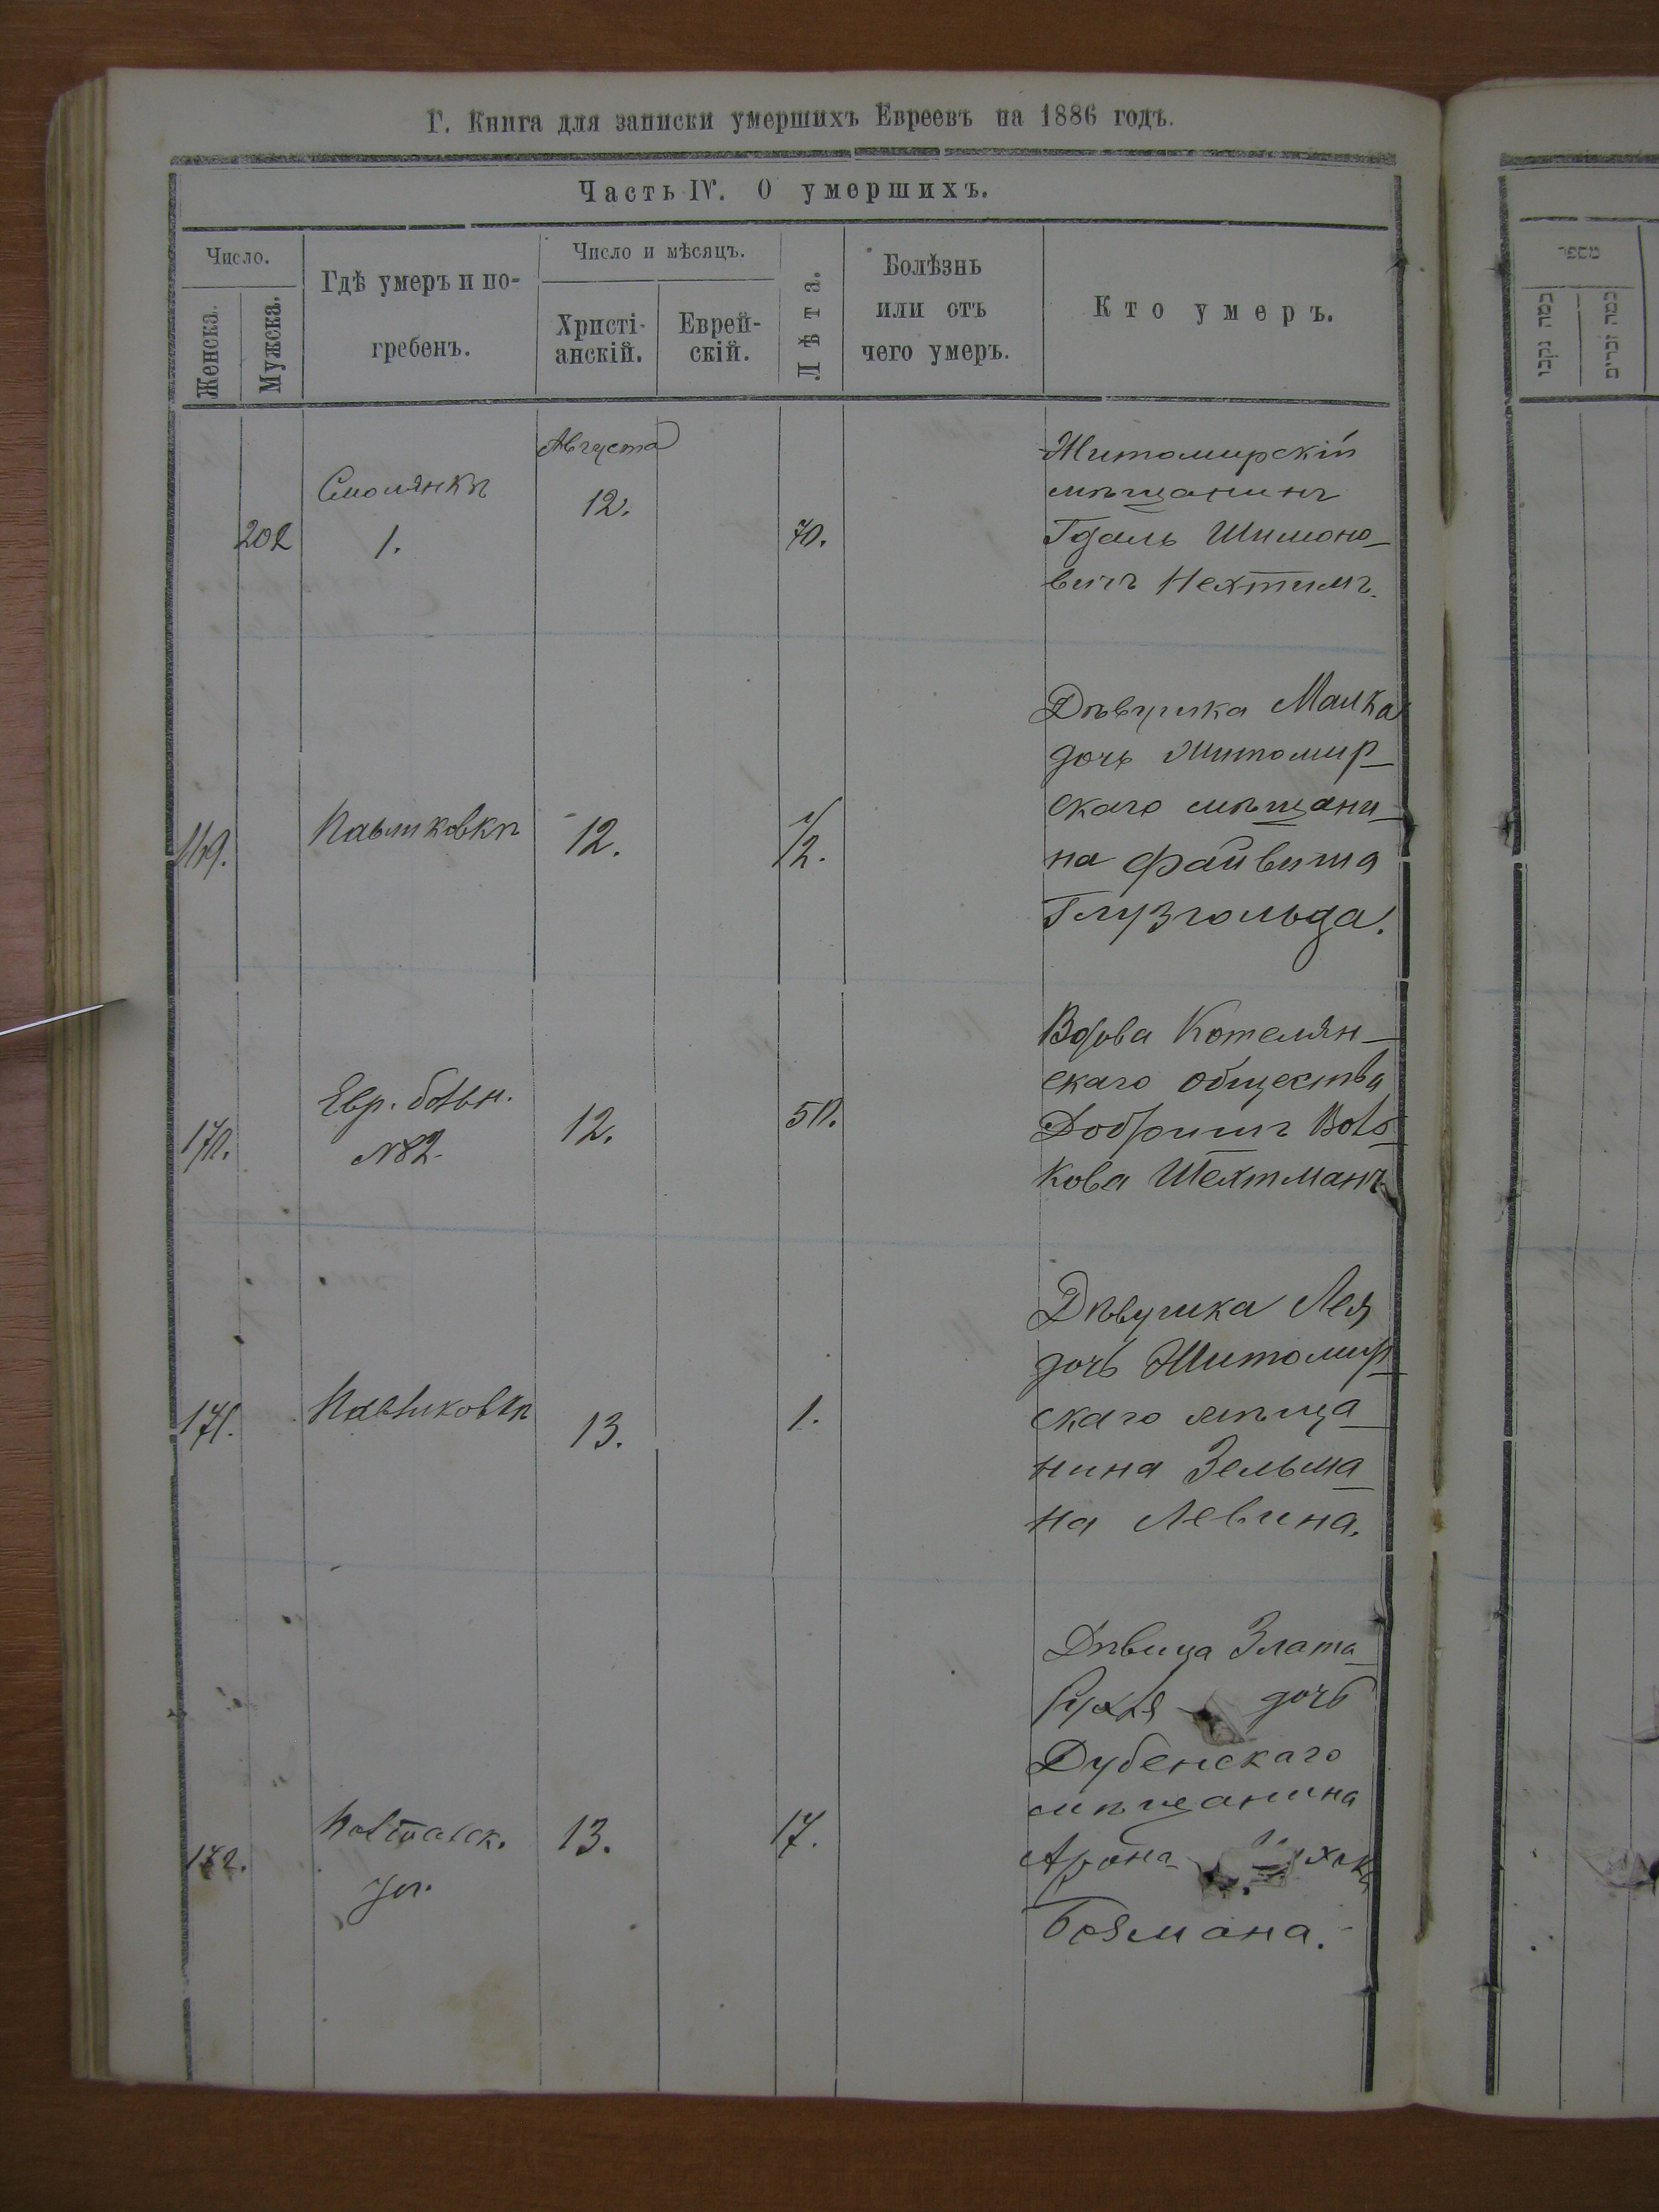 Г. Книга для записки умершихъ Евреевъ на 1886 годъ.
Часть IV. О умершихъ.
Число.
Женска.
Мужска.
Гдѣ умеръ и по-
гребенъ.
Число и мѣсяцъ.
Христі-
анскій.
Еврей-
скій.
Лѣта.
Болѣзнь
или отъ
чего умеръ.
Кто умеръ.
202
Смолянкѣ
1.
Августа
12.
70.
Житомирскій
мѣщанинъ
Гдаль Шимоно-
вичъ Нехтимъ.
169.
Павликовкѣ
12.
1/2.
Дѣвушка Малка
дочь Житомир-
скаго мѣщани-
на Файвиша
Глузгольда.
170.
Евр. больн.
№82.
12.
50.
Вдова Котелян-
скаго общества
Добришъ Воль-
кова Шехтманъ
171.
Павликовкѣ
13.
1.
Дѣвушка Лея
дочь Житомир-
скаго мѣща-
нина Зельма-
на Левина.
172.
ул.
13.
17.
Дѣвица Злата-
Рухля дочь
Дубенскаго
мѣщанина
Аронъ
Бозмана.